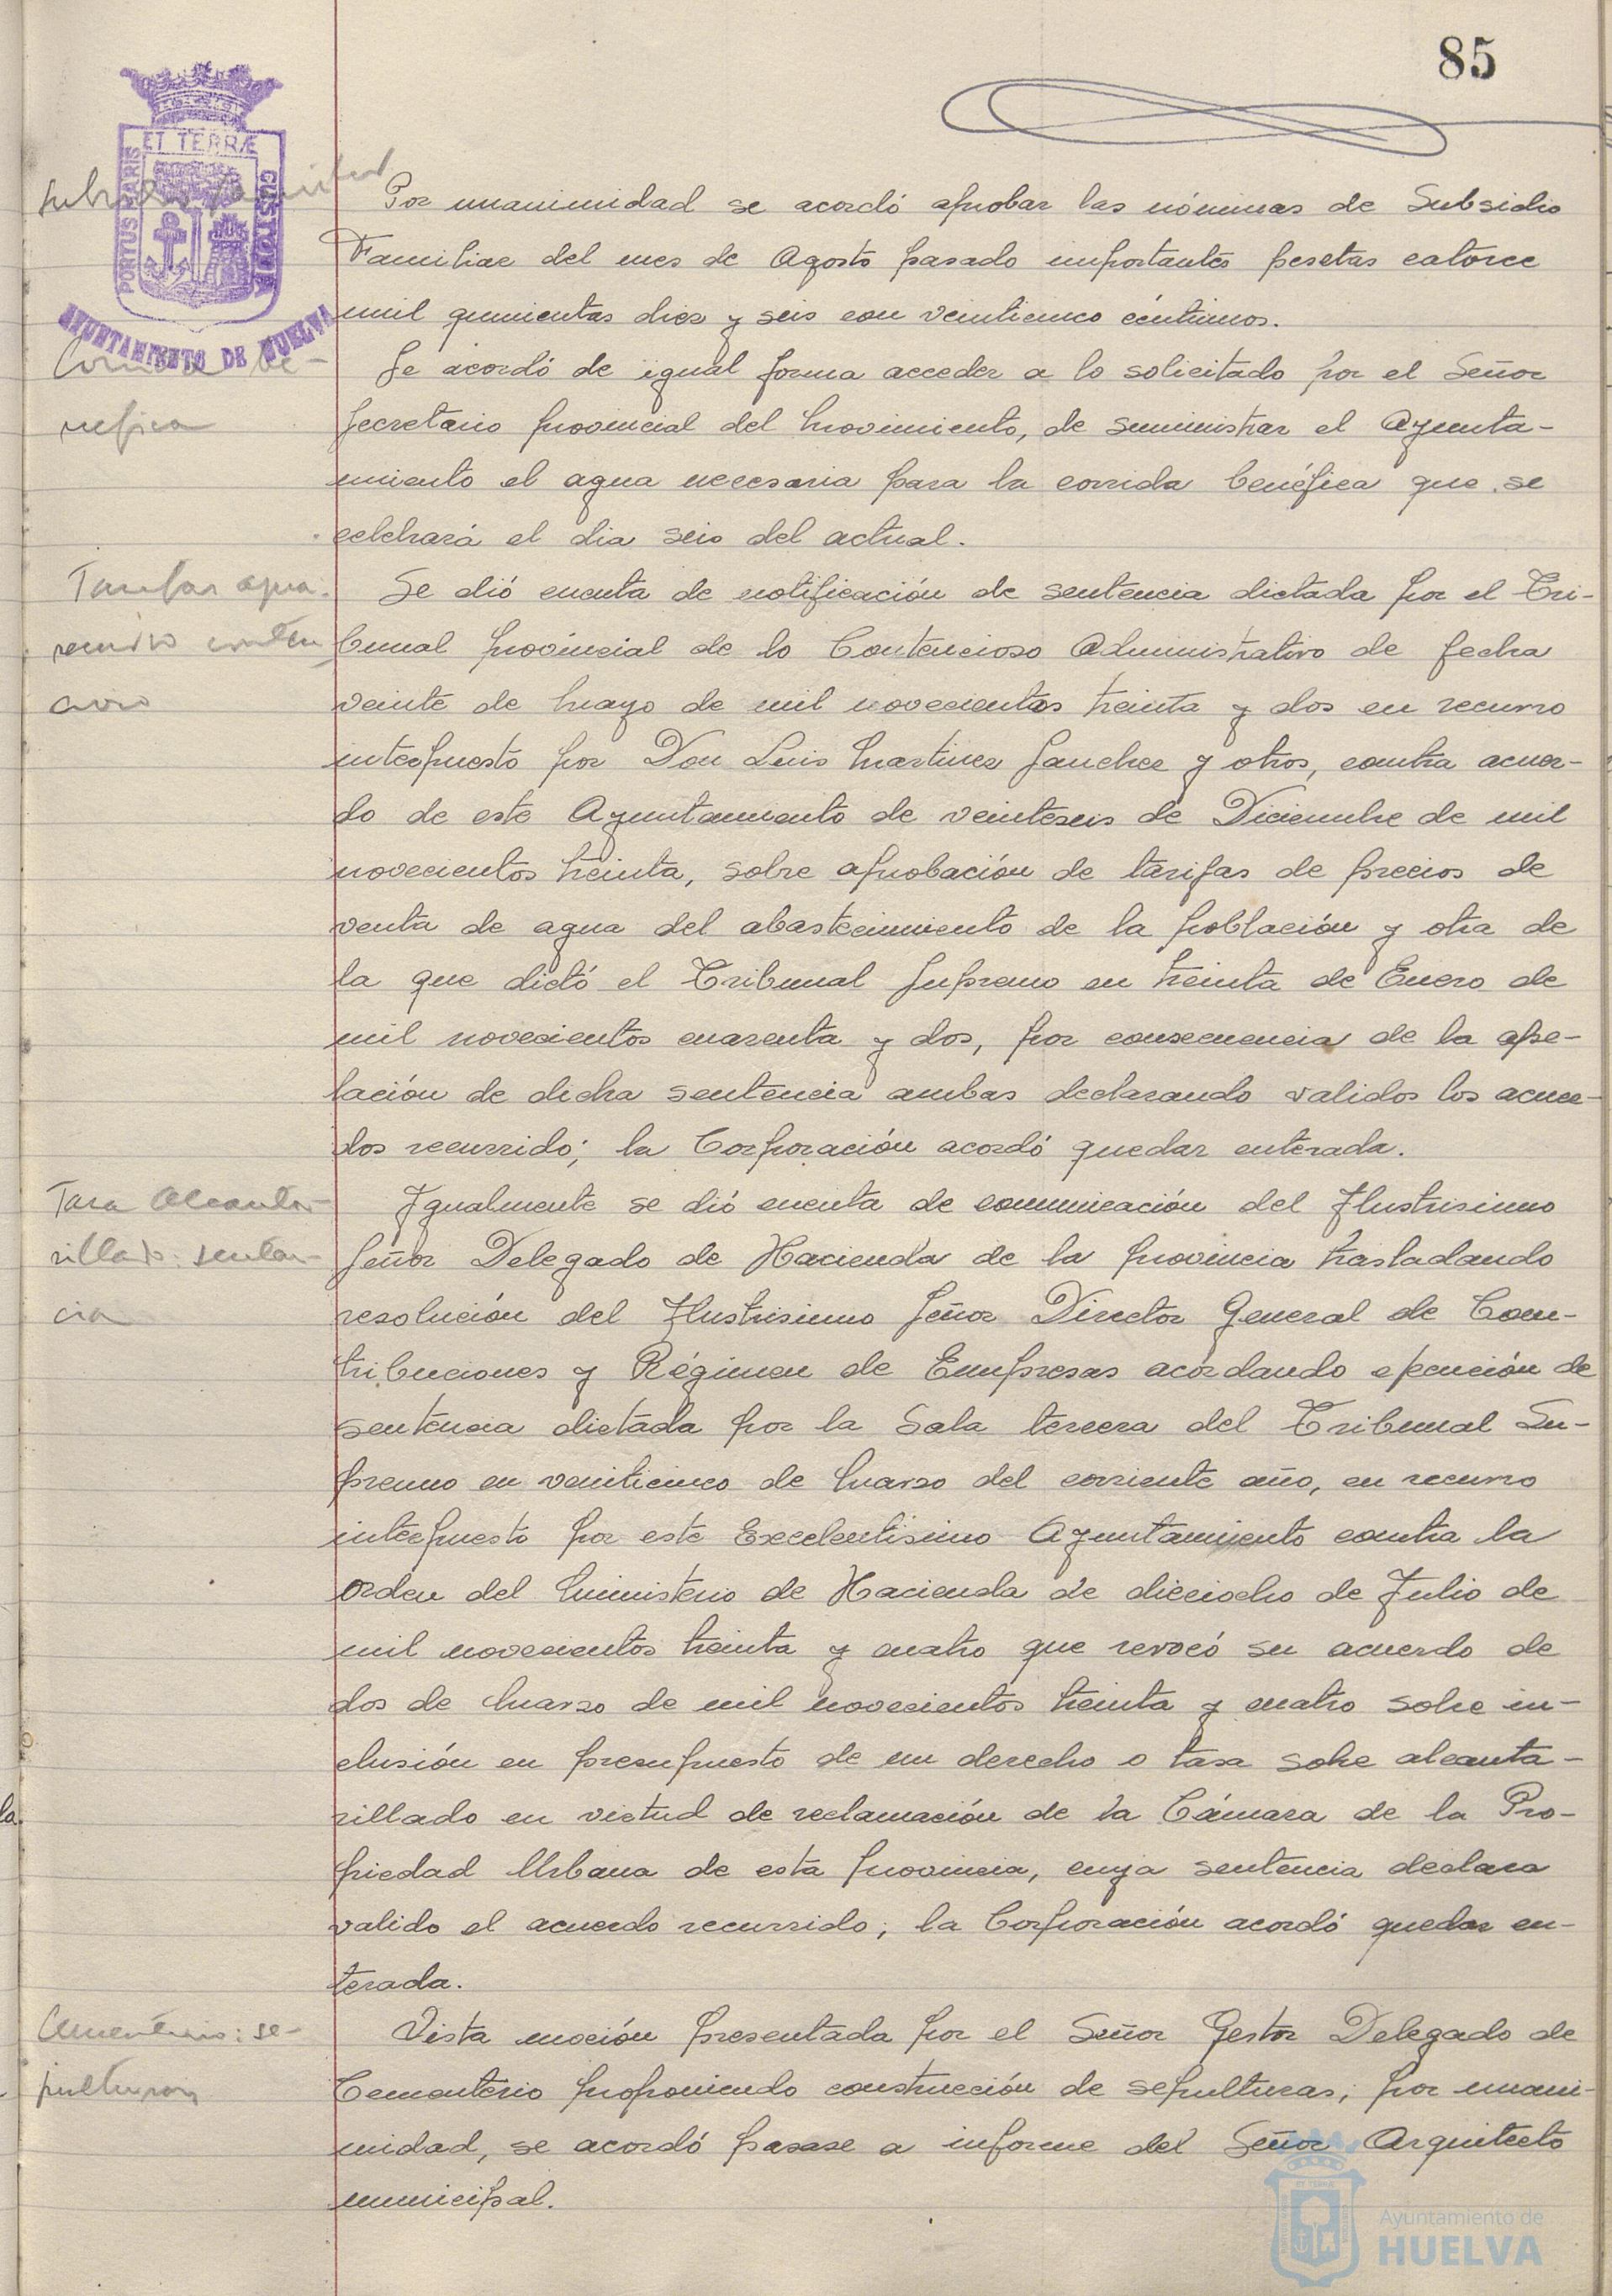 85
ET TERRÆ
PORTUS MARIS
CUSTODIA
AYUNTAMIENTO DE HUELVA
Subsidio Familiar
Por unanimidad se acordó aprobar las nóminas de Subsidio
Familiar del mes de Agosto pasado importantes pesetas catorce
mil quinientas diez y seis con veinticinco céntimos.
Corrida Be-
nefica
Se acordó de igual forma acceder a lo solicitado por el Señor
Secretario provincial del Movimiento, de suministrar el Ayunta-
miento el agua necesaria para la corrida benéfica que se
celebrará el dia seis del actual.
Tarifas agua.
recurso conten
cioso
Se dió cuenta de notificación de sentencia dictada por el Tri-
bunal provincial de lo Contencioso Administrativo de fecha
veinte de Mayo de mil novecientos treinta y dos en recurso
interpuesto por Don Luis Martinez Sanchez y otros, contra acuer-
do de este Ayuntamiento de veinteseis de Diciembre de mil
novecientos treinta, sobre aprobación de tarifas de precios de
venta de agua del abastecimiento de la población y otra de
la que dictó el Tribunal Supremo en treinta de Enero de
mil novecientos cuarenta y dos, por consecuencia de la ape-
lación de dicha sentencia ambas declarando validos los acuer-
dos recurrido; la Corporación acordó quedar enterada.
Tasa Alcanta-
rillado: senten-
cia
Igualmente se dió cuenta de comunicación del Ilustrisimo
Señor Delegado de Hacienda de la provincia trasladando
resolución del Ilustrisimo Señor Director General de Con-
tribuciones y Régimen de Empresas acordando ejecución de
sentencia dictada por la Sala tercera del Tribunal Su-
premo en veinticinco de Marzo del corriente año, en recurso
interpuesto por este Excelentisimo Ayuntamiento contra la
orden del Ministerio de Hacienda de dieciocho de Julio de
mil novecientos treinta y cuatro que revocó su acuerdo de
dos de Marzo de mil novecientos treinta y cuatro sobre in-
clusión en presupuesto de un derecho o tasa sobre alcanta-
rillado en virtud de reclamación de la Cámara de la Pro-
piedad Urbana de esta provincia, cuya sentencia declara
valido el acuerdo recurrido; la Corporación acordó quedar en-
terada.
Cementerio: se-
pulturas
Vista moción presentada por el Señor Gestor Delegado de
Cementerio proponiendo construcción de sepulturas; por unani-
midad, se acordó pasase a informe del Señor Arquitecto
municipal.
la
Ayuntamiento de
HUELVA